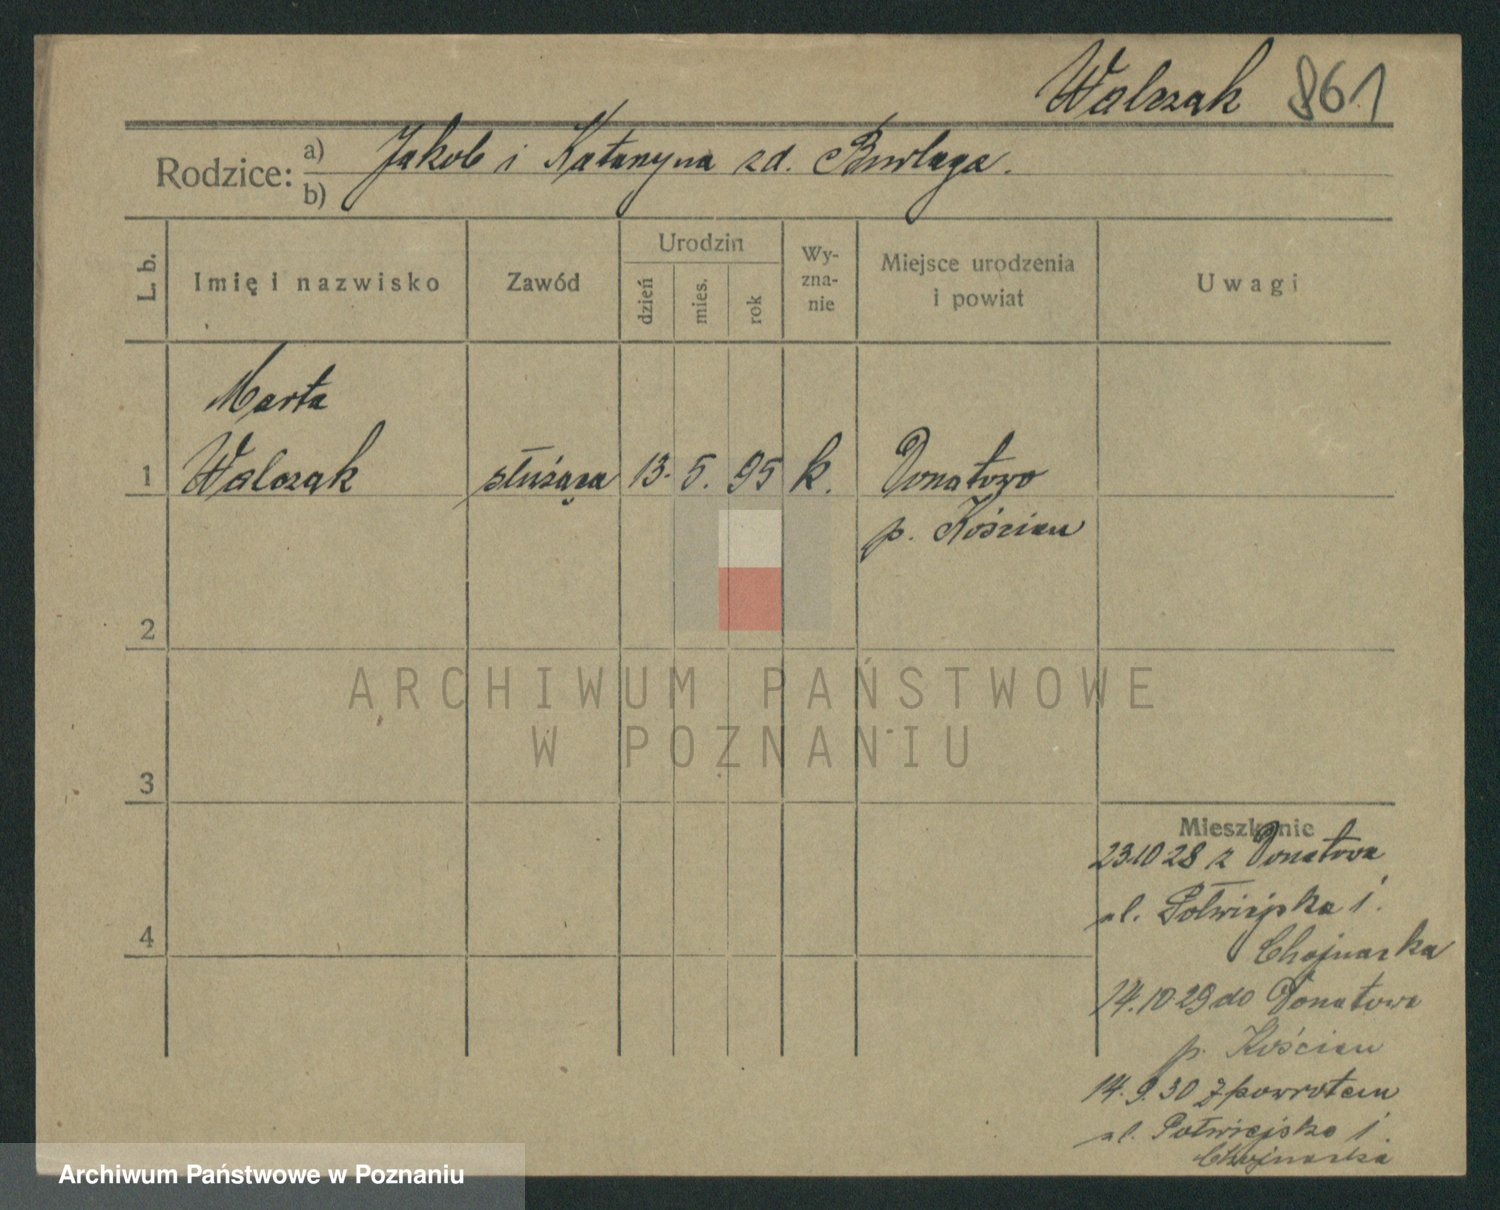 Walczak 861
Rodzice: a) b) Jakob i Katarzyna zd. Burlaga.
L. b.
Imię i nazwisko
Zawód
Urodzin
dzień
mies.
rok
Wy-
zna-
nie
Miejsce urodzenia
i powiat
Uwagi
Marta
1 Walczak służąca 13. 5. 95 k. Donatowo
p. Kościan
2
3
4
ARCHIWUM PAŃSTWOWE
W POZNANIU
Mieszkanie
23.10 28 z Donatowa
ul. Półwiejska 1.
Chojnacka
14.10 29 do Donatowa
p. Kościan
14.9.30 z powrotem
ul. Półwiejska 1.
Chojnacka
Archiwum Państwowe w Poznaniu